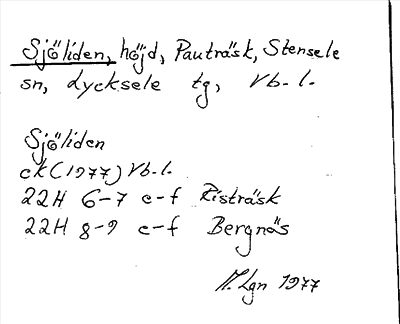 Sjöliden, höjd, Pauträsk, Stensele
sn, Lycksele tg, Vb. l.
Sjöliden
ek (1977) Vb. l.
22H 6-7 e-f Risträsk
22H 8-9 e-f Bergnäs
M. Lgn 1977